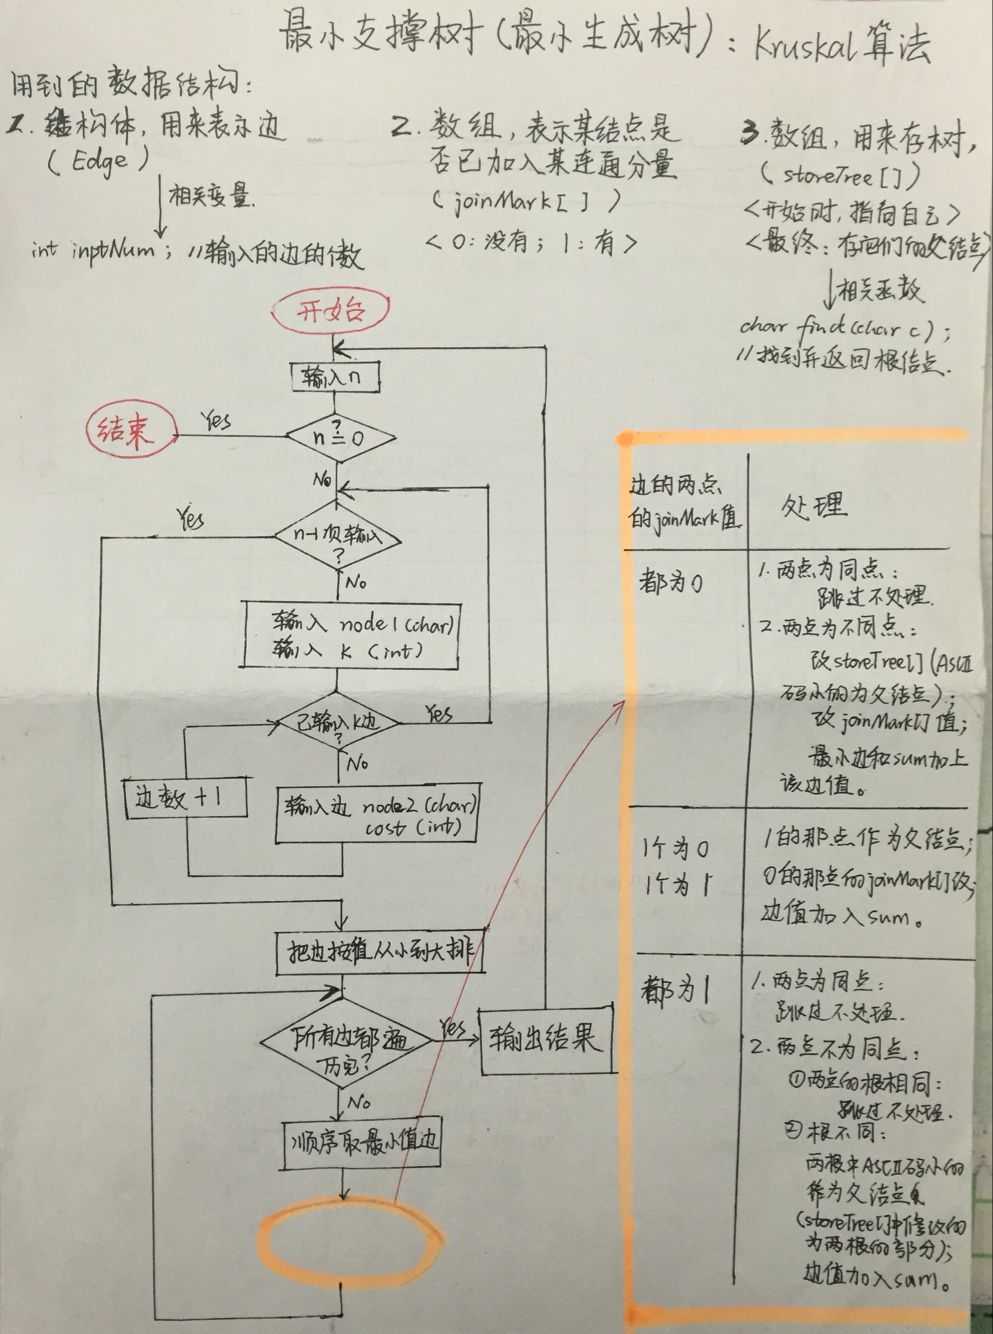 最小支撑树(最小生成树)：Kruskal算法
用到的数据结构：
1. 结构体，用来表示边
(Edge)
相关变量.
int inptNum； //输入的边的个数
2. 数组，表示某结点是
否已加入某连通分量
(joinMark[ ])
<0：没有；1：有>
3. 数组，用来存树，
(storeTree[])
<开始时，指向自己>
<最终：存它们的父结点>
相关函数
char find(char c)；
//找到并返回根结点.
开始
输入n
n=0
?
Yes
结束
No
n-1项输入
?
Yes
No
输入 node1(char)
输入 k (int)
已输入k边
?
Yes
No
边数+1
输入边 node2(char)
cost(int)
把边按值从小到大排
所有边都遍
历完？
Yes
输出结果
No
顺序取最小值边
边的两点
的joinMark值
处理
都为0
1. 两点为同点：
跳过不处理.
2. 两点为不同点：
改storeTree[](ASCII
码小的为父结点)；
改joinMark[]值；
最小边和sum加上
该边值。
1个为0
1个为1
1的那点作为父结点；
0的那点的joinMark[]改；
边值加入sum。
都为1
1. 两点为同点：
跳过不处理.
2. 两点不为同点：
①两点的根相同：
跳过不处理.
②根不同：
两根中ASCII码小的
作为父结点
(storeTree[]中修改的
为两根的部分)；
边值加入sum。